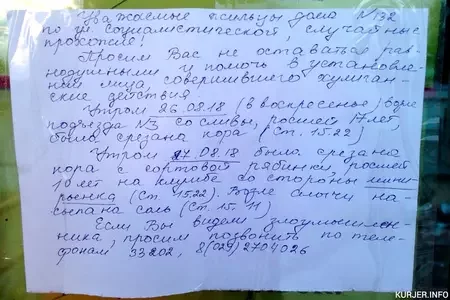 Уважаемые жильцы дома №132
по ул. Социалистической, случайные
прохожие!
Просим Вас не оставаться рав-
нодушными и помочь в установле-
нии лица, совершившего хулиган-
ские действия.
Утром 26.08.18 (в воскресенье) возле
подъезда №3 со сливы, росшей 17 лет,
была срезана кора (ст. 15.22)
Утром 27.08.18 была срезана
кора с сортовой рябинки, росшей
10 лет на клумбе со стороны мини-
рынка (ст. 15.22). Возле алычи на-
сыпана соль (ст. 15.11)
Если Вы видели злоумышлен-
ника, просим позвонить по теле-
фонам 33202, 8(029) 2704026
KURJER.INFO